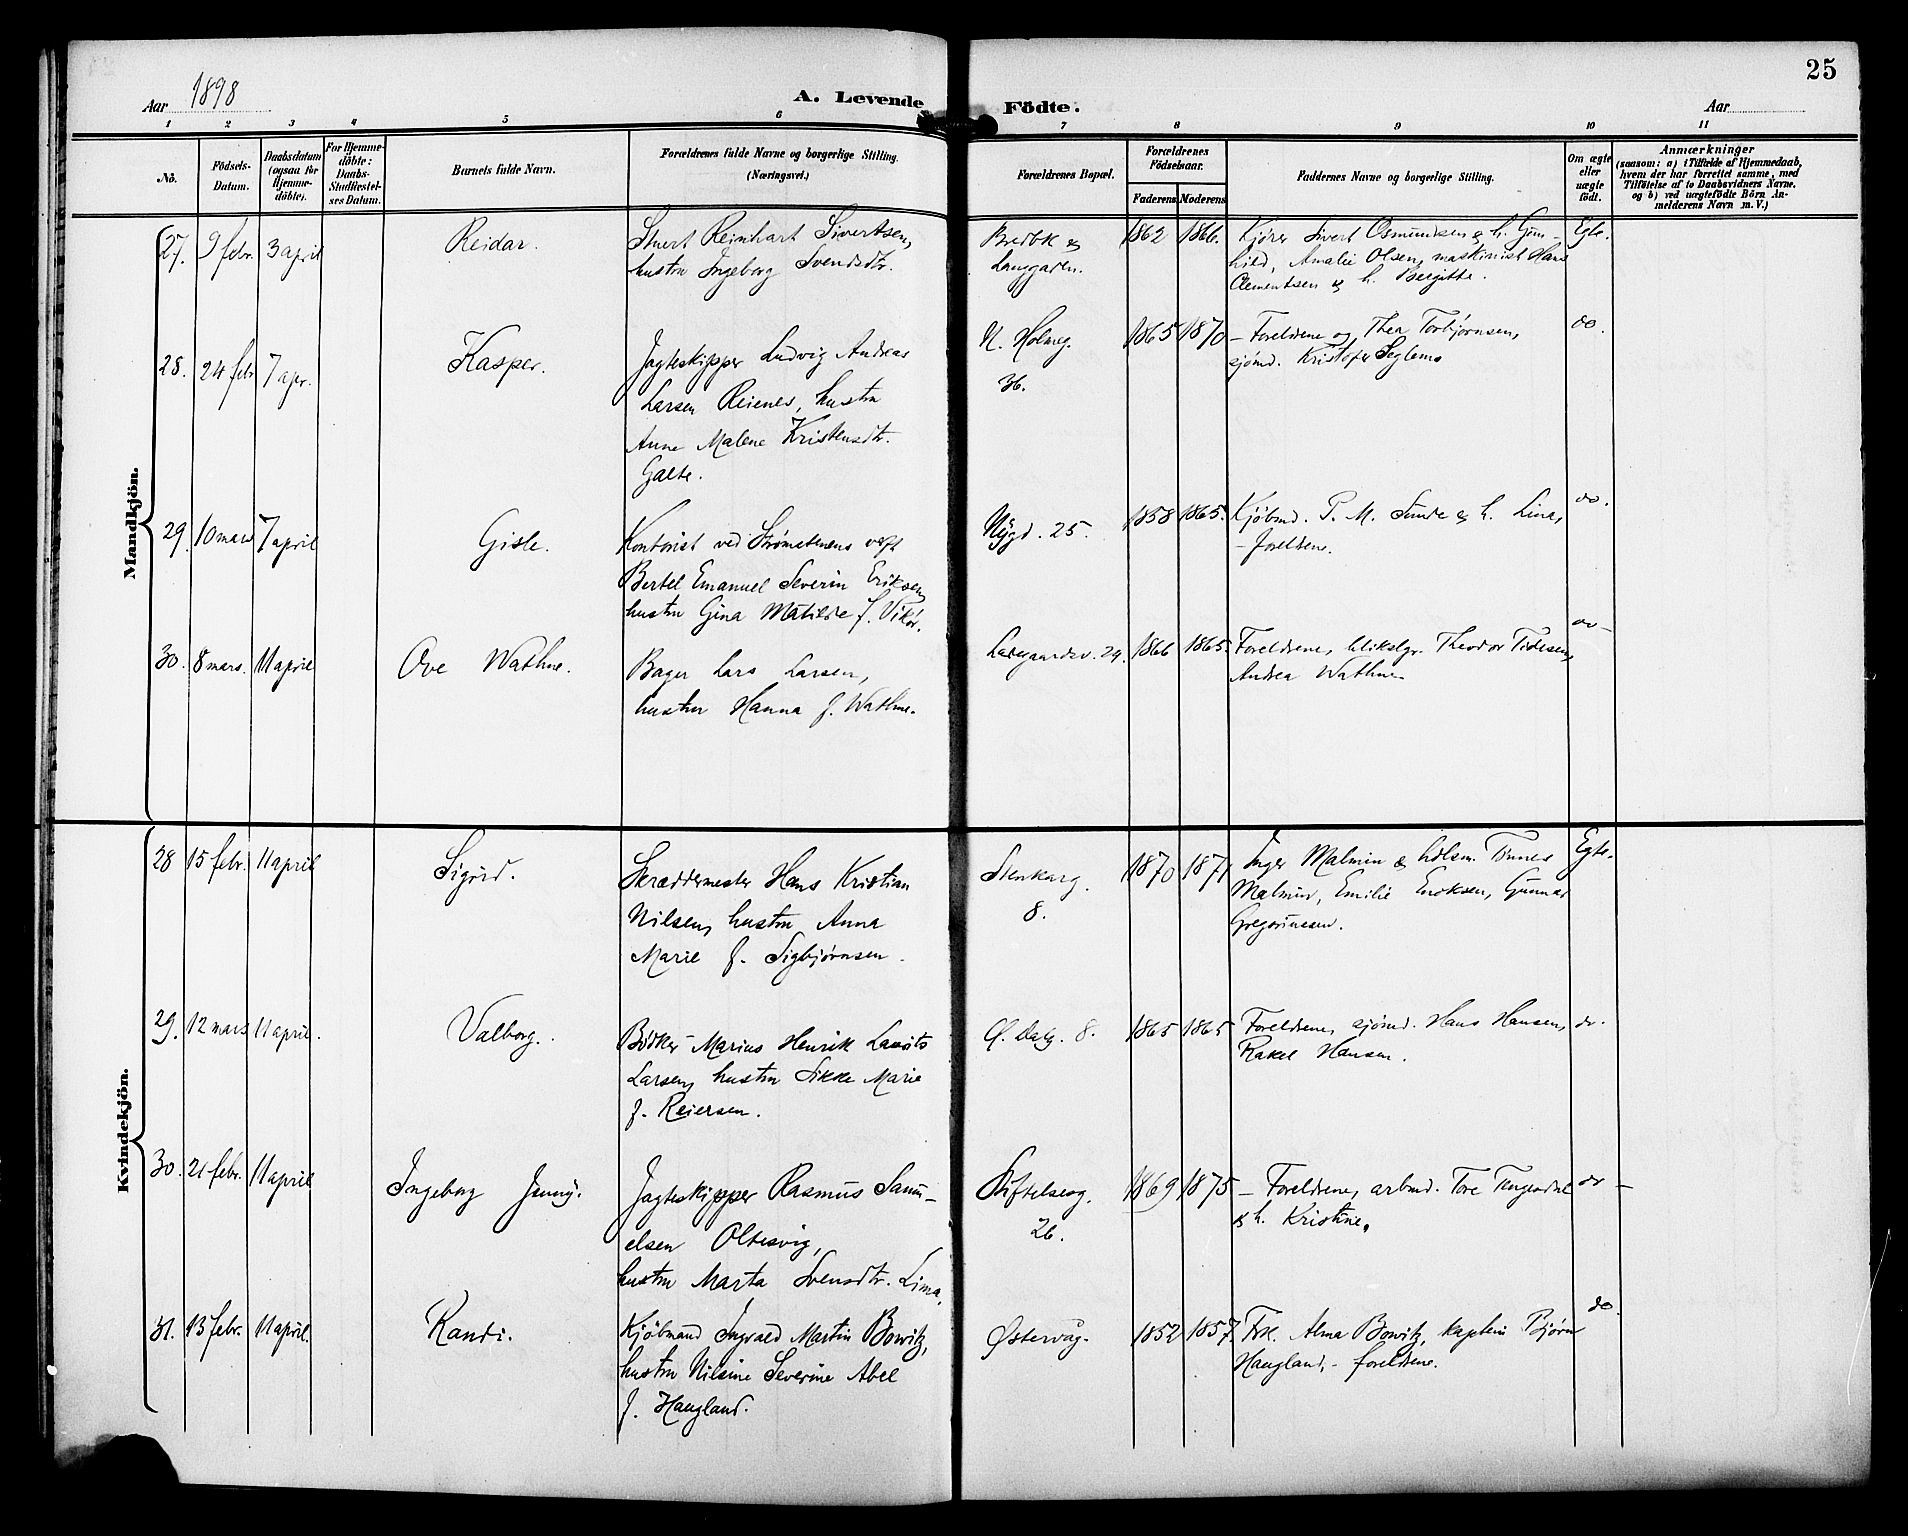 25
Aar 1898
A. Levende Födte.
Aar
1 2 3 4 5 6 7 8 9 10 11
No.
Födsels-
Datum.
Daabsdatum
(ogsaa for
Hjemme-
döbte).
For Hjemme-
döbte:
Daabs-
Stadfæstel-
ses Datum.
Barnets fulde Navn.
Forældrenes fulde Navne og borgerlige Stilling.
(Næringsvei.)
Forældrenes Bopæl.
Forældrenes
Födselsaar.
Faderens Moderens
Faddernes Navne og borgerlige Stilling.
Om ægte
eller
uægte
födt.
Anmærkninger
(saasom: a) i Tilfælde af Hjemmedaab,
hvem der har forrettet samme, med
Tilföielse af to Daabsvidners Navne,
og b) ved uægtefödte Börn An-
melderens Navn m. V.)
Mandkjön.
27. 9 febr. 3 april
Reidar.
Reinhart Sivertsen,
hustru Ingeborg Svendsdtr.
Bredbk &
Langgaden.
1862 1866.
Kjører Sivert Osmundsen & h. Gun-
hild, Amalie Olsen, maskinist Hans
Clementsen & h. Bergitte.
Egte.
28. 24 febr 7 apr.
Kasper.
Jagteskipper Ludvig Andreas
Larsen Reienes, hustru
Anne Malene Kristensdtr.
Galte.
N. Holmeg.
36.
1865 1870
– Foreldrene og Thea Torbjørnsen,
sjømd. Kristofer Seglem
do.
29. 10 mars 7 april
Gisle.
Kontorist ved Strømstenens veft
Bertel Emanuel Severin Eriksen,
hustru Gina Matilde f. Vikør.
Nygd. 25.
1858 1865.
Kjøbmd. P. M. Sunde & h. Lina,
– foreldrene.
do.
30. 8 mars. 11 april
Ove Wathne.
Bager Lars Larsen,
hustru Hanna f. Wathne.
Ladegaardsv. 29.
1866 1865.
Foreldrene, blikslgr. Theodor Tidesen,
Andrea Wathne
do –
Kvindekjön.
28 15 febr. 11 april
Sigrid.
Skræddermester Hans Kristian
Nilsen, hustru Anna
Marie f. Sigbjørnsen.
Stenkarg.
8.
1870 1871
Inger Malmin & holsm. Tønnes
Malmin, Emilie Eriksen, Gunnar
Gregoriussen.
Egte.
29. 12 mars 11 april.
Valborg.
Bødker Marius Henrik Laurits
Larsen, hustru Sikke Marie
f. Reiersen.
Ø. Dalg. 8.
1865 1865
Foreldrene, sjømd. Hans Hansen,
Rakel Hansen.
do.
30. 21 febr. 11 april
Ingeborg Jenny.
Jagteskipper Rasmus Samu-
elsen Oltesvig,
hustru Marta Svensdtr. Lima.
Stiftelsesg.
26.
1869 1875
– Foreldrene, arbmd. Tore Tengesdal
& h. Kristine.
do –
31. 13 febr. 11 april.
Randi.
Kjøbmand Ingvald Martin Bowitz,
hustru Nilsine Severine Abel
f. Haugland.
Østervåg.
1852 1857.
Frk. Alma Bowitz, kaptein Bjørn
Haugland, – foreldrene.
do.